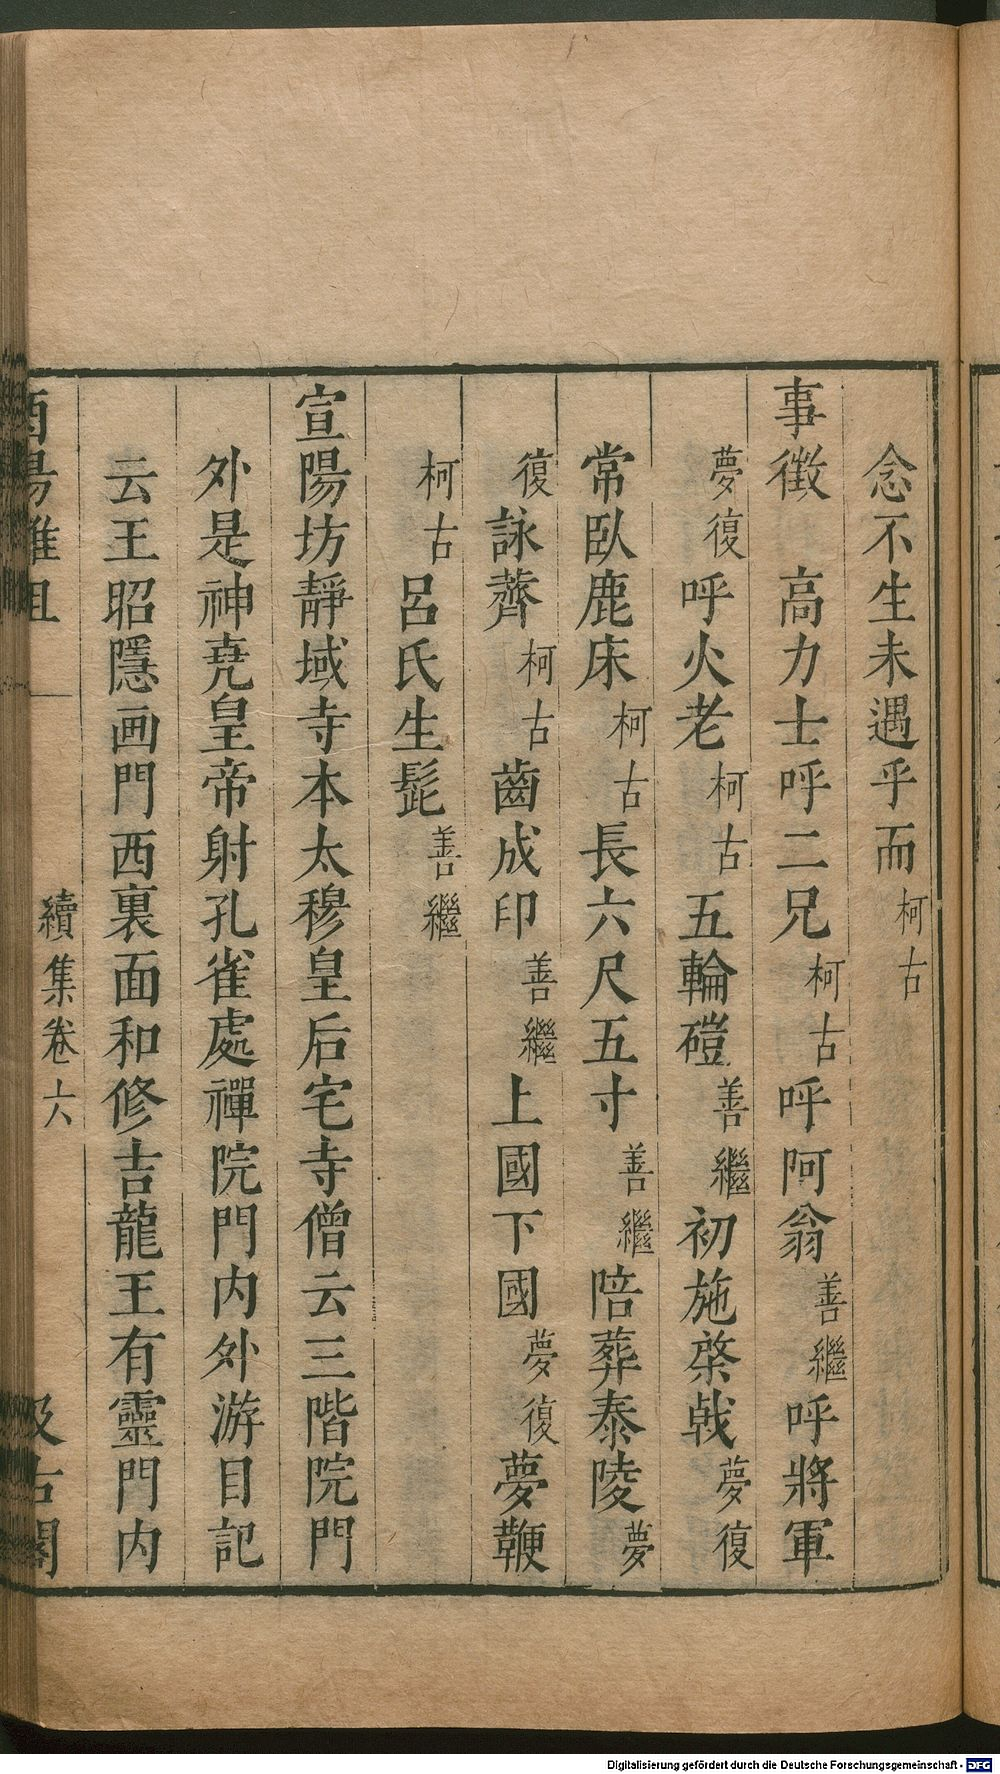 念不生未遇乎而柯古
事徵　高力士呼二兄柯古呼阿翁善繼呼將軍
夢復呼火老柯古五輪磑善繼初施棨戟夢復
常臥鹿床柯古長六尺五寸善繼陪葬泰陵夢
復詠薺柯古齒成印善繼上國下國夢復夢鞭
柯古呂氏生髭善繼
宣陽坊靜域寺本太穆皇后宅寺僧云三階院門
外是神堯皇帝射孔雀處禪院門內外游目記
云王昭隱画門西裏面和修吉龍王有靈門内
酉陽雜俎　續集卷六　汲古閣
Digitalisierung gefördert durch die Deutsche Forschungsgemeinschaft - DFG